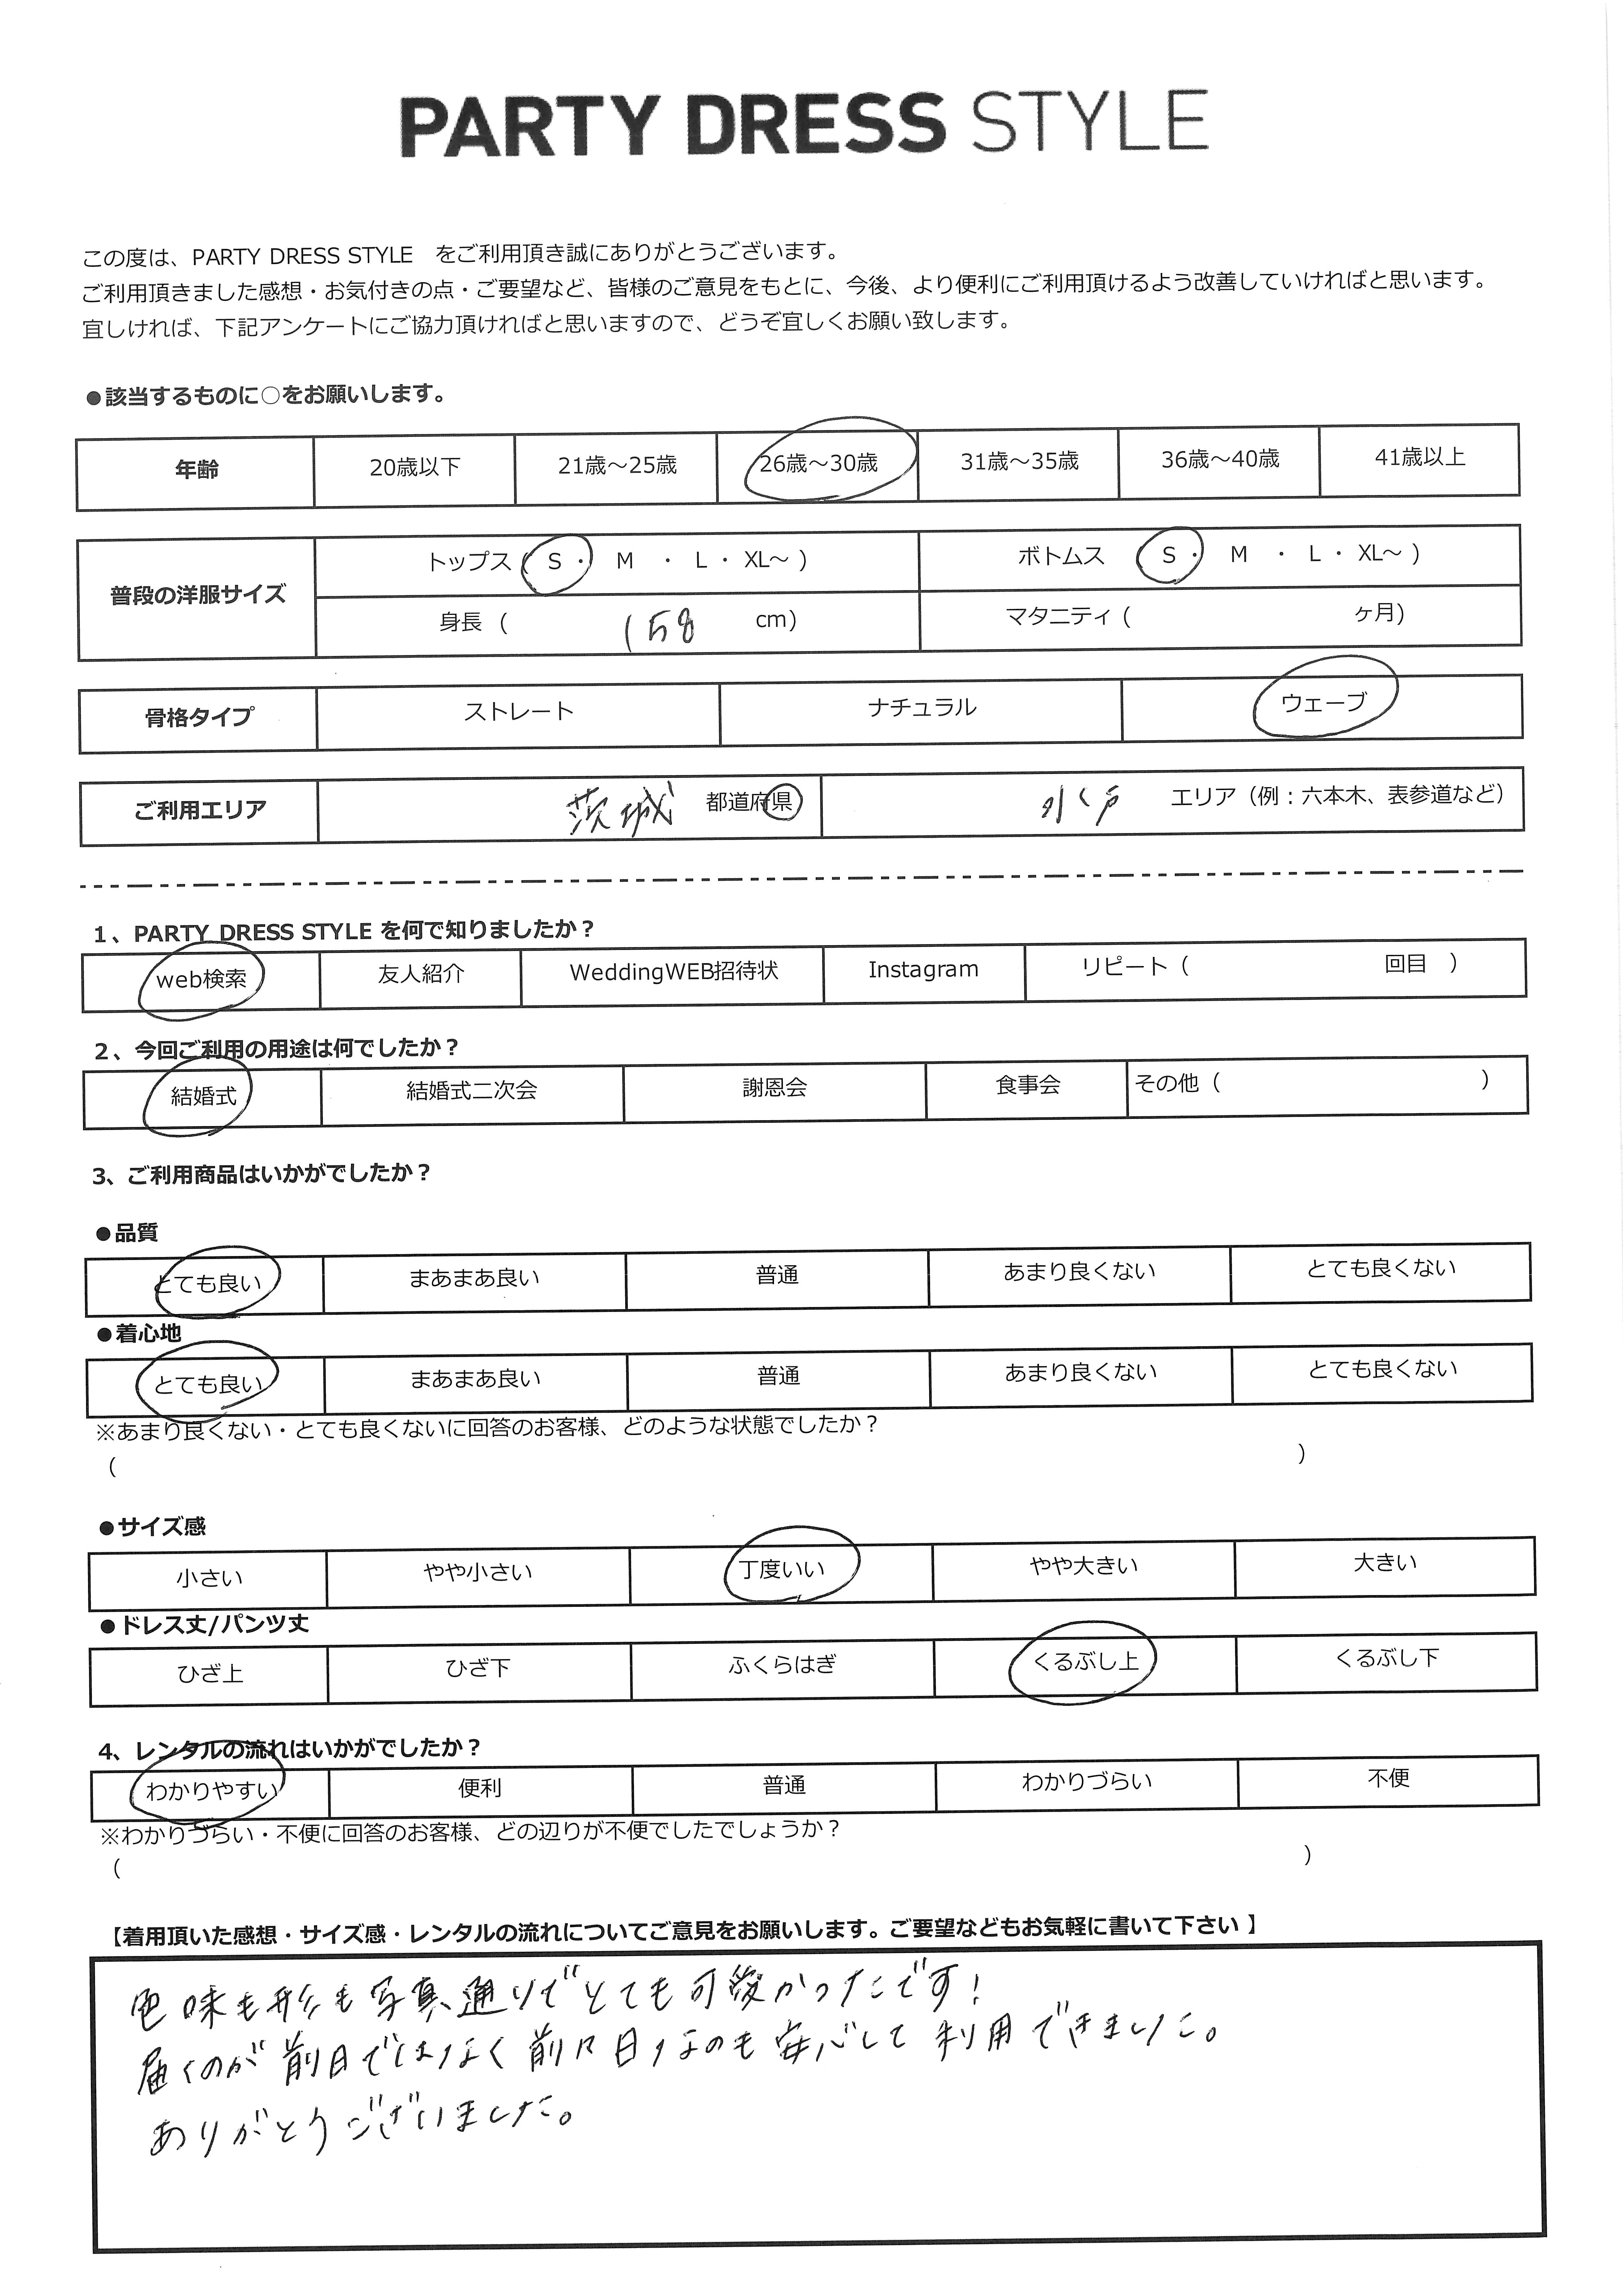 PARTY DRESS STYLE
この度は、PARTY DRESS STYLE　をご利用頂き誠にありがとうございます。
ご利用頂きました感想・お気付きの点・ご要望など、皆様のご意見をもとに、今後、より便利にご利用頂けるよう改善していければと思います。
宜しければ、下記アンケートにご協力頂ければと思いますので、どうぞ宜しくお願い致します。
●該当するものに○をお願いします。
年齢 20歳以下 21歳～25歳 26歳～30歳 31歳～35歳 36歳～40歳 41歳以上
普段の洋服サイズ トップス ( S ・ M ・ L ・ XL～ ) ボトムス ( S ・ M ・ L ・ XL～ )
身長 ( 158 cm) マタニティ ( ヶ月)
骨格タイプ ストレート ナチュラル ウェーブ
ご利用エリア 茨城 都道府県 水戸 エリア（例：六本木、表参道など）
1、PARTY DRESS STYLE を何で知りましたか？
web検索 友人紹介 WeddingWEB招待状 Instagram リピート（ 回目 ）
2、今回ご利用の用途は何でしたか？
結婚式 結婚式二次会 謝恩会 食事会 その他（ ）
3、ご利用商品はいかがでしたか？
●品質
とても良い まあまあ良い 普通 あまり良くない とても良くない
●着心地
とても良い まあまあ良い 普通 あまり良くない とても良くない
※あまり良くない・とても良くないに回答のお客様、どのような状態でしたか？
（ ）
●サイズ感
小さい やや小さい 丁度いい やや大きい 大きい
●ドレス丈/パンツ丈
ひざ上 ひざ下 ふくらはぎ くるぶし上 くるぶし下
4、レンタルの流れはいかがでしたか？
わかりやすい 便利 普通 わかりづらい 不便
※わかりづらい・不便に回答のお客様、どの辺りが不便でしたでしょうか？
（ ）
【着用頂いた感想・サイズ感・レンタルの流れについてご意見をお願いします。ご要望などもお気軽に書いて下さい 】
色味も形も写真通りでとても可愛かったです！
届くのが前日ではなく前々日なのも安心して利用できました。
ありがとうございました。